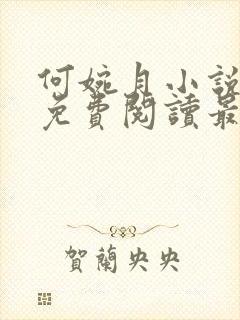 何婉月小說
免費閱讀最
賀蘭央央